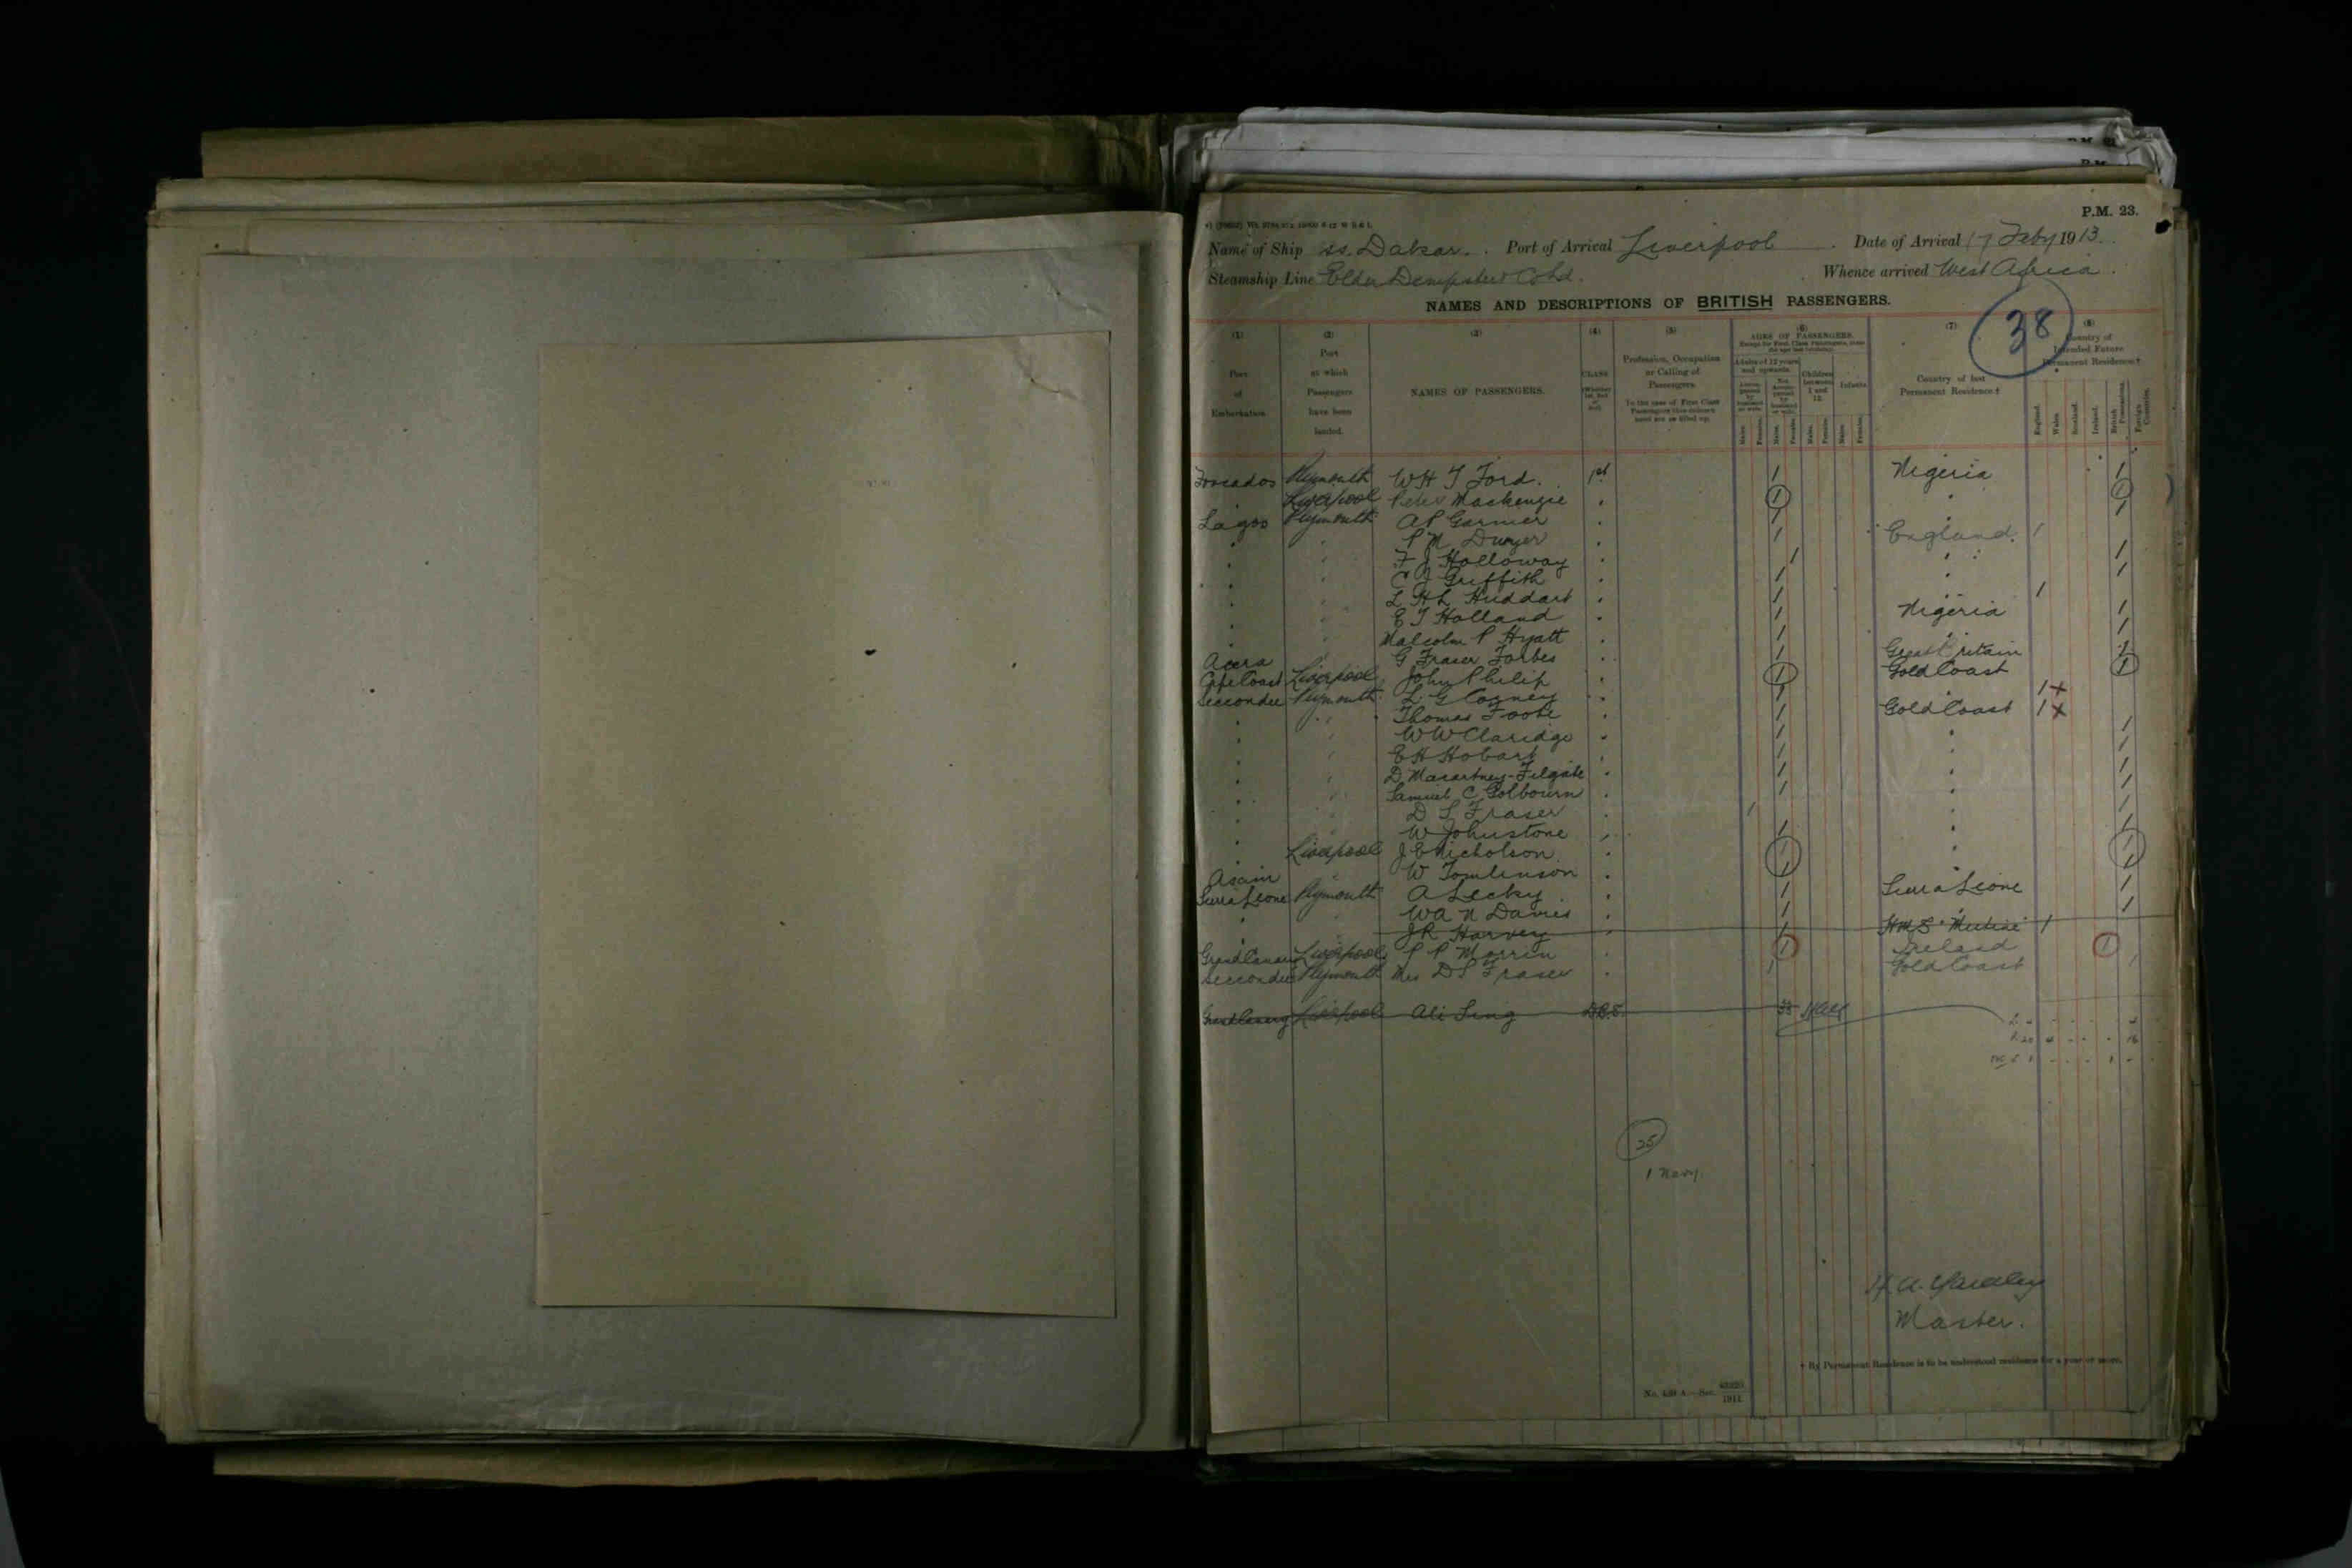 P.M. 23.
Name of Ship ss. Dakar. Port of Arrival Liverpool Date of Arrival 17 Feby 1913.
Steamship Line Elder Dempster Co Ltd. Whence arrived West Africa.
NAMES AND DESCRIPTIONS OF BRITISH PASSENGERS.
38
(1) (2) (3) (4) (5) (6) (7) (8)
Port of Embarkation
Port at which Passengers have been landed.
NAMES OF PASSENGERS.
CLASS
Profession, Occupation or Calling of Passengers.
AGES OF PASSENGERS.
Adults of 12 years and upwards.
Children between 1 and 12.
Infants.
Males. Females. Males. Females. Males. Females. Males. Females.
Country of last Permanent Residence.†
Country of Intended Future Permanent Residence.†
England. Wales. Scotland. Ireland. British Possessions. Foreign Countries.
Forcados Plymouth W H T Ford. 1st 1 Nigeria 1
Liverpool Peter Mackenzie 1 " 1
Lagos Plymouth A P Garnier 1 " 1
" " P M Dwyer 1 England. 1
" " F J Holloway 1 " 1
" " C J Griffith 1 " 1
" " L H L Huddart 1 " 1
" " E T Holland 1 Nigeria 1
" " Malcolm P Hyatt 1 " 1
Accra G Fraser Forbes 1 Great Britain 1
Cape Coast Liverpool John Philip 1 Gold Coast 1
Seccondee Plymouth L. G Corney 1 1 x
" " Thomas Foote 1 Gold Coast 1 x
" " W W Claridge 1 " 1
" " E H Hobart 1 " 1
" " D. Macartney-Filgate 1 " 1
" " Samuel C Golbourn 1 " 1
" " D S Fraser 1 " 1
" " W Johnstone 1 " 1
" Liverpool J E Nicholson. 1 " 1
W Tomlinson 1 1
Sierra Leone Plymouth A Lecky 1 Sierra Leone 1
" " W A N Davies 1 " 1
J R Harvey 1 H M S "Mutine" 1
Grand Canary Liverpool P P Morrin 1 Ireland 1
Seccondee Plymouth Mrs D S Fraser 1 Gold Coast 1
Grand Canary Liverpool Ali Sing D.B.S.
25
1 Navy.
Master.
† By Permanent Residence is to be understood residence for a year or more.
1911